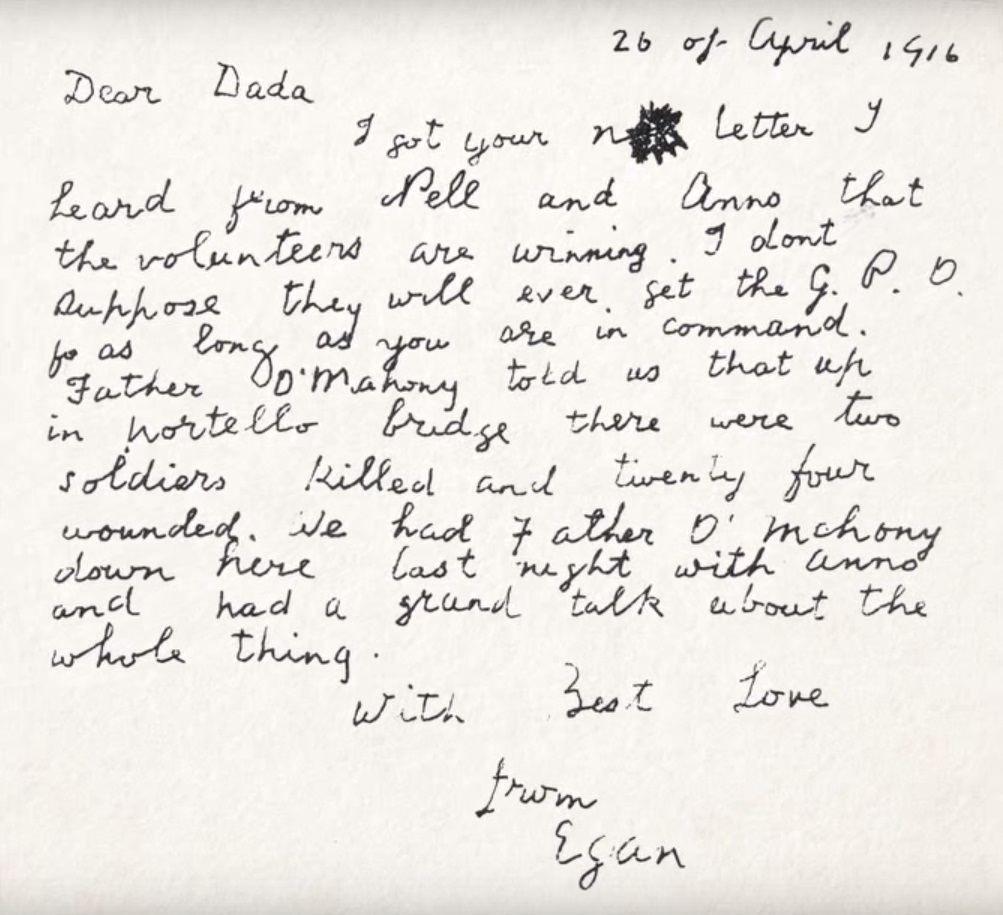 26 of April 1916
Dear Dada
I got your n letter I
heard from Nell and Anno that
the volunteers are winning. I dont
suppose they will ever get the G. P. O.
fo as long as you are in command.
Father O'Mahony told us that up
in portello bridge there were two
soldiers killed and twenty four
wounded. We had Father O' Mahony
down here last night with Anno
and had a grand talk about the
whole thing.
With Best Love
from
Egan